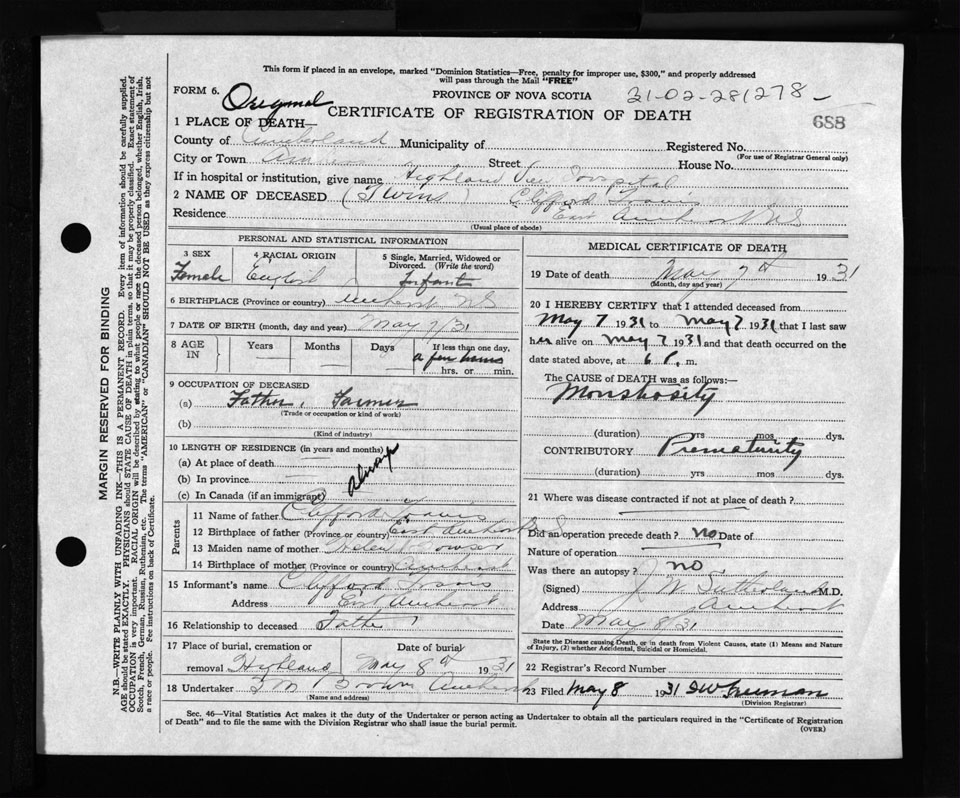 This form if placed in an envelope, marked "Dominion Statistics—Free, penalty for improper use, $300," and properly addressed
will pass through the Mail "FREE"
FORM 6. Original
PROVINCE OF NOVA SCOTIA 31-02-281278
CERTIFICATE OF REGISTRATION OF DEATH 688
1 PLACE OF DEATH—
County of Cumberland Municipality of Registered No.
(For use of Registrar General only)
City or Town Street House No.
If in hospital or institution, give name Highland View Hospital
2 NAME OF DECEASED (Twins) Clifford Travis
Residence East Amherst NS
(Usual place of abode)
PERSONAL AND STATISTICAL INFORMATION
3 SEX 4 RACIAL ORIGIN 5 Single, Married, Widowed or
Divorced. (Write the word)
Female English Infant
6 BIRTHPLACE (Province or country) Amherst NS
7 DATE OF BIRTH (month, day and year) May 7/31
8 AGE IN Years Months Days If less than one day,
a few hours
hrs. or min.
9 OCCUPATION OF DECEASED
(a) Father, Farmer
(Trade or occupation or kind of work)
(b)
(Kind of industry)
10 LENGTH OF RESIDENCE (in years and months)
(a) At place of death
(b) In province
(c) In Canada (if an immigrant)
always
Parents
11 Name of father Clifford Travis
12 Birthplace of father (Province or country) East Amherst NS
13 Maiden name of mother Helen Bowser
14 Birthplace of mother (Province or country) Amherst
15 Informant's name Clifford Travis
Address East Amherst
16 Relationship to deceased Father
17 Place of burial, cremation or Date of burial
removal Highland May 8th 1931
18 Undertaker Brown Amherst
(Name and address)
MEDICAL CERTIFICATE OF DEATH
19 Date of death May 7th 1931
(Month, day and year)
20 I HEREBY CERTIFY that I attended deceased from
May 7 1931 to May 7 1931 that I last saw
her alive on May 7 1931 and that death occurred on the
date stated above, at 6 P. m.
The CAUSE of DEATH was as follows:—
Monstrosity
(duration) yrs mos dys.
CONTRIBUTORY Prematurity
(duration) yrs mos dys.
21 Where was disease contracted if not at place of death?
Did an operation precede death? no Date of
Nature of operation
Was there an autopsy? no
(Signed) J W Sutherland M.D.
Address Amherst
Date May 8/31
State the Disease causing Death, or in death from Violent Causes, state (1) Means and Nature
of Injury, (2) whether Accidental, Suicidal or Homicidal.
22 Registrar's Record Number
23 Filed May 8 1931 Freeman
(Division Registrar)
Sec. 46—Vital Statistics Act makes it the duty of the Undertaker or person acting as Undertaker to obtain all the particulars required in the "Certificate of Registration
of Death" and to file the same with the Division Registrar who shall issue the burial permit.
(OVER)
MARGIN RESERVED FOR BINDING
N.B.—WRITE PLAINLY WITH UNFADING INK—THIS IS A PERMANENT RECORD. Every item of information should be carefully supplied.
AGE should be stated EXACTLY. PHYSICIANS should STATE CAUSE OF DEATH in plain terms, so that it may be properly classified. Exact statement of
OCCUPATION is very important. RACIAL ORIGIN will be described by stating to what people or race the deceased person belonged, whether English, Irish,
Scotch, French, German, Russian, Ruthenian, etc. The terms "AMERICAN" or "CANADIAN" SHOULD NOT BE USED as they express citizenship but not
a race or people. See instructions on back of Certificate.